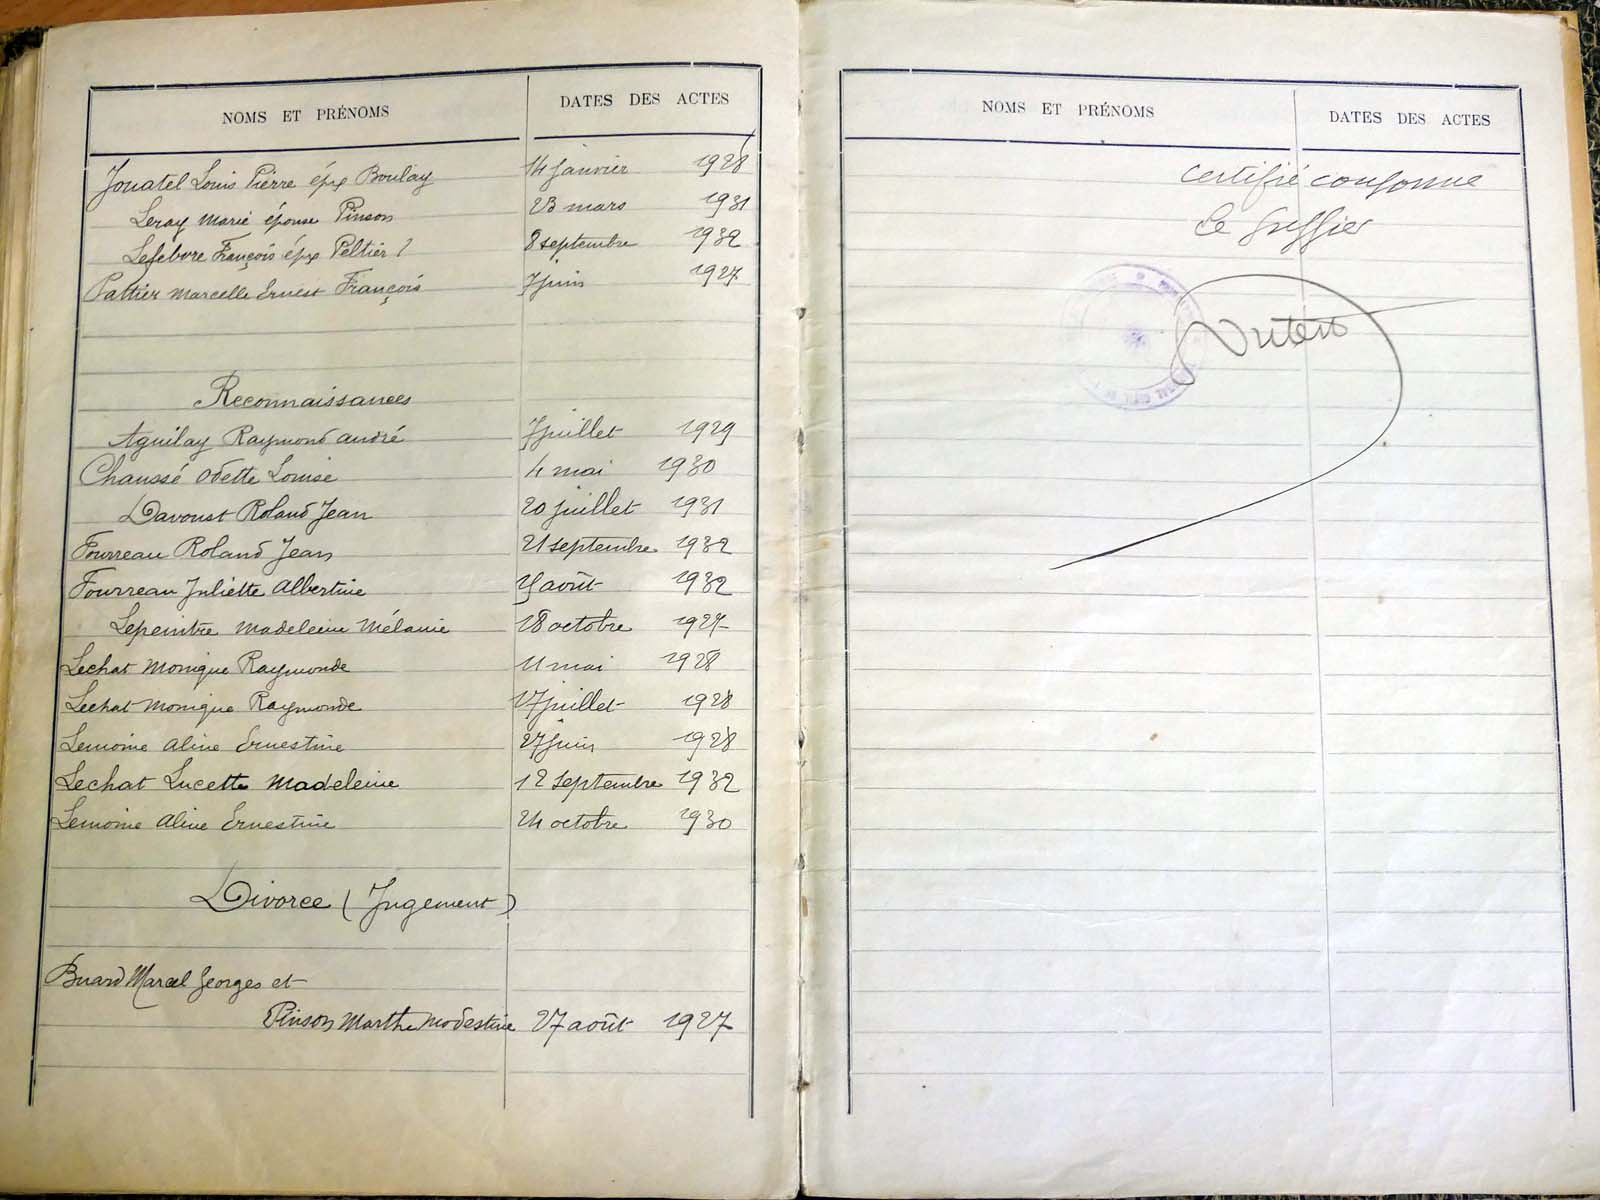 NOMS ET PRÉNOMS DATES DES ACTES
Jouatel Louis Pierre épx Boulay 14 janvier 1928
Leray Marie épouse Pinson 23 mars 1931
Lefebvre François épx Peltier 8 septembre 1932
Pattier Marcelle Ernest François 7 juin 1927
Reconnaissances
Aguilay Raymond André 7 juillet 1929
Chaussé Odette Louise 4 mai 1930
Davoust Roland Jean 20 juillet 1931
Fourreau Roland Jean 21 septembre 1932
Fourreau Juliette Albertine août 1932
Lepeintre Madeleine Mélanie 18 octobre 1927
Lechat Monique Raymonde 11 mai 1928
Lechat Monique Raymonde 17 juillet 1928
Lemoine Aline Ernestine 27 juin 1928
Lechat Lucette Madeleine 12 septembre 1932
Lemoine Aline Ernestine 24 octobre 1930
Divorce (Jugement)
Buard Marcel Georges et
Pinson Marthe Modestine 27 août 1927
NOMS ET PRÉNOMS DATES DES ACTES
Certifié conforme
Le Greffier